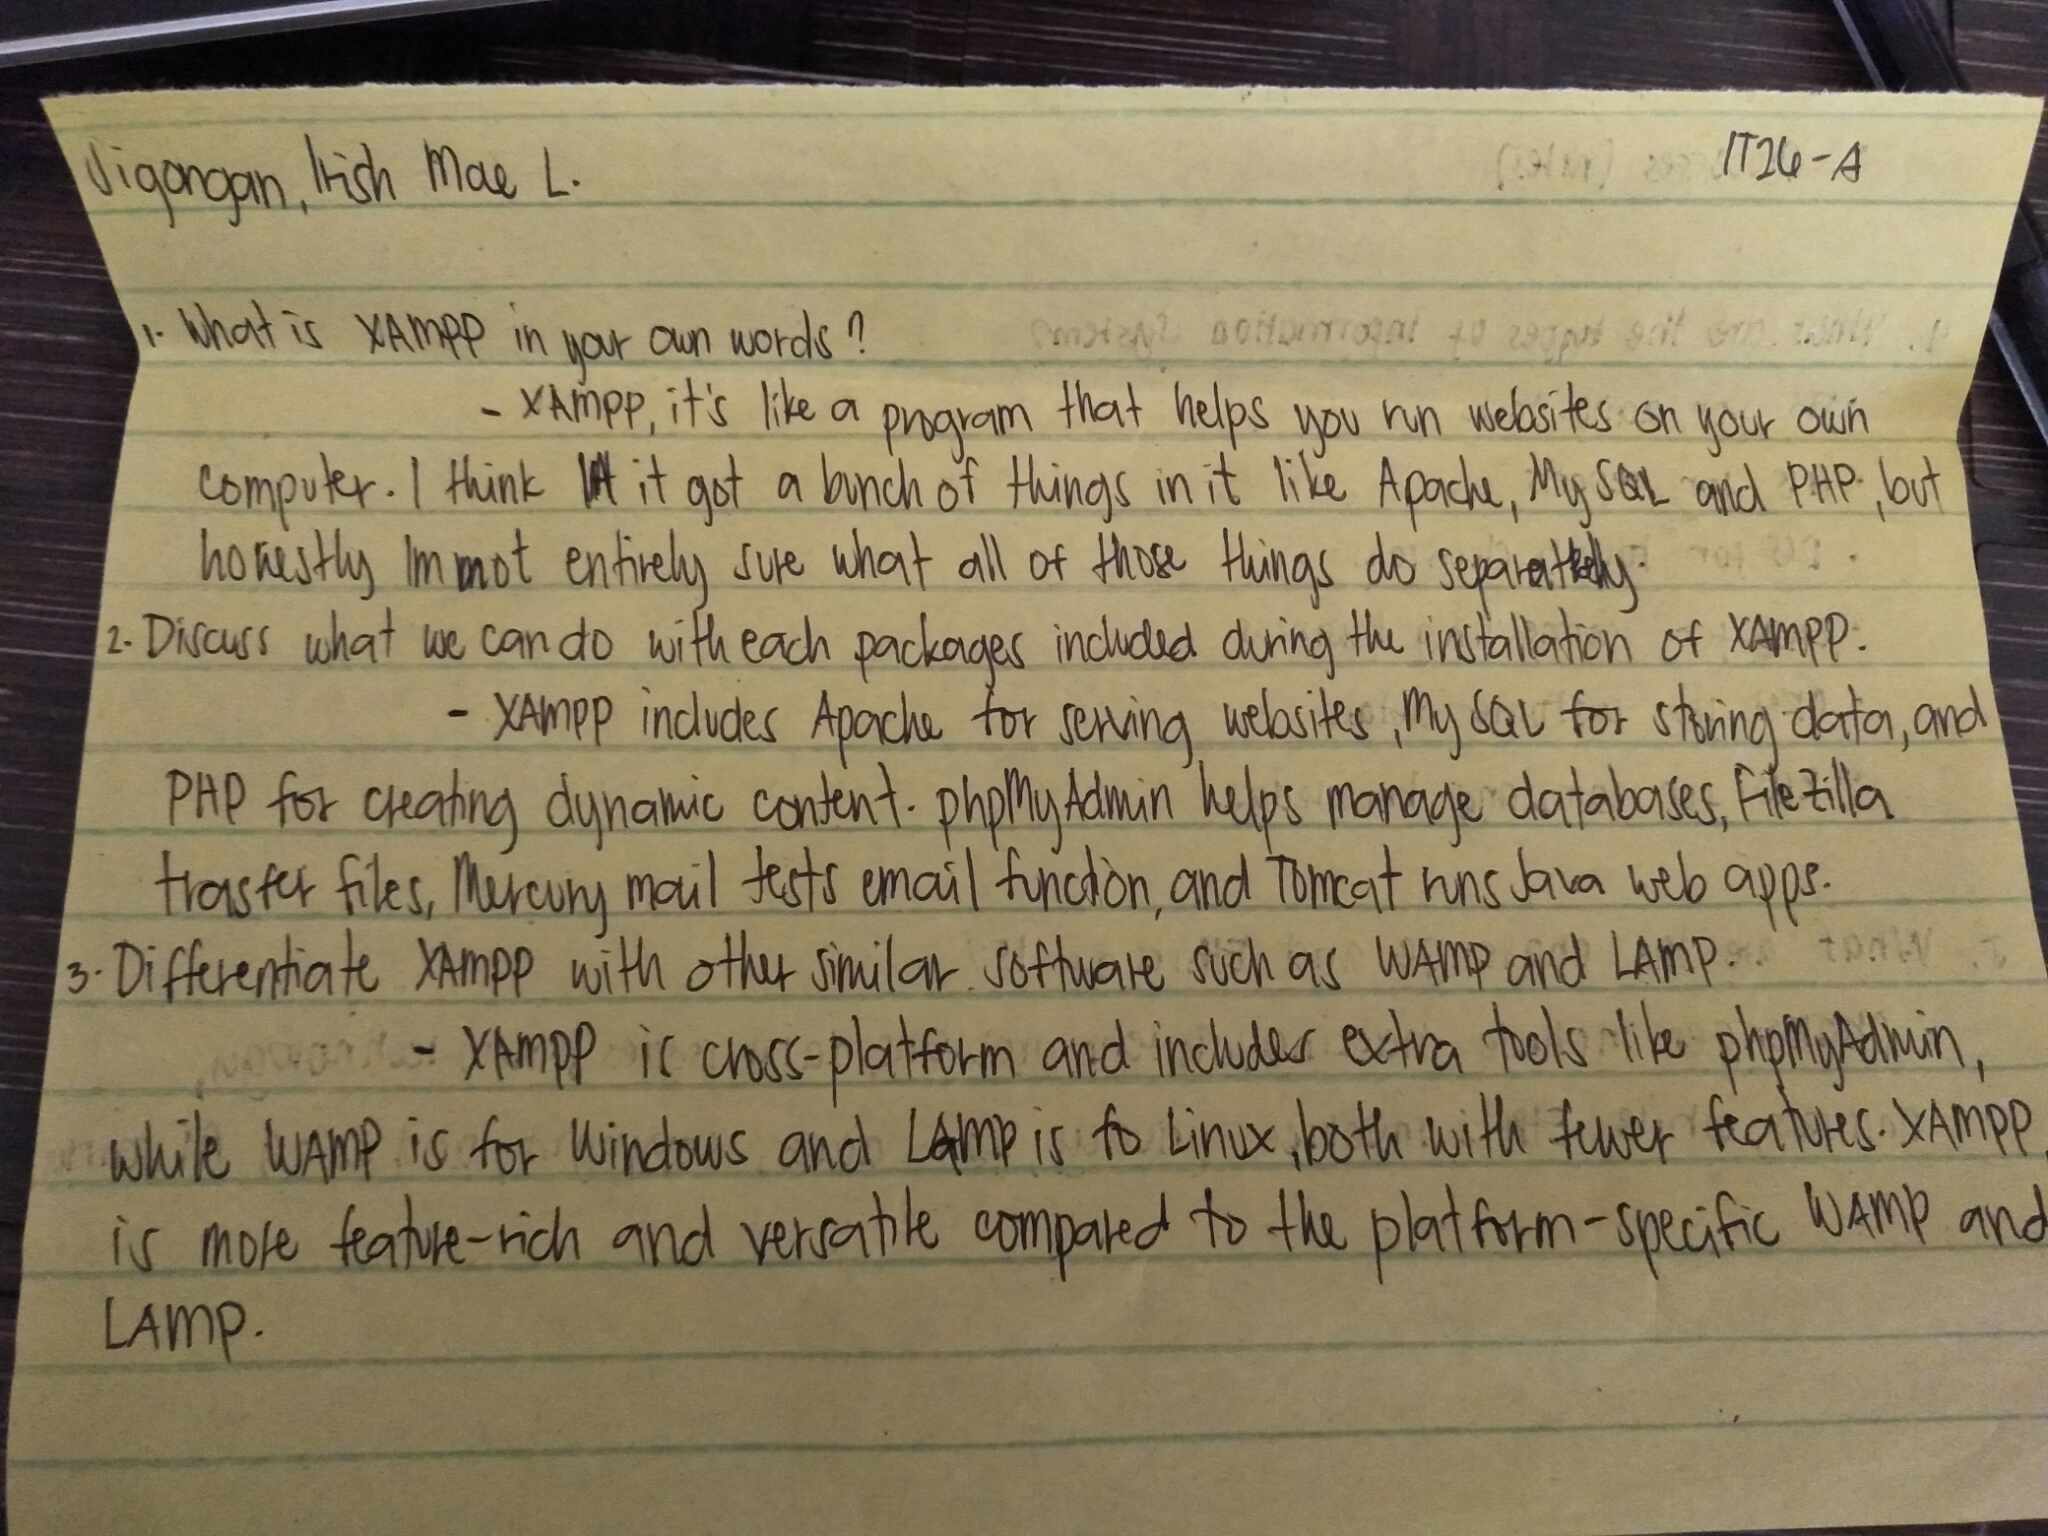 Jigangan, Irish Mae L.
IT26-A
1. What is XAMPP in your own words?
- XAMPP, it's like a program that helps you run websites on your own
computer. I think it got a bunch of things in it like Apache, MySQL and PHP, but
honestly Im not entirely sure what all of those things do separately.
2. Discuss what we can do with each packages included during the installation of XAMPP.
- XAMPP includes Apache for serving websites, MySQL for storing data, and
PHP for creating dynamic content. phpMyAdmin helps manage databases, FileZilla
trasfer files, Mercury mail tests email function, and Tomcat runs Java web apps.
3. Differentiate XAMPP with other similar software such as WAMP and LAMP.
- XAMPP is cross-platform and includes extra tools like phpMyAdmin,
while WAMP is for Windows and LAMP is fo Linux, both with fewer features. XAMPP
is more feature-rich and versatile compared to the platform-specific WAMP and
LAMP.